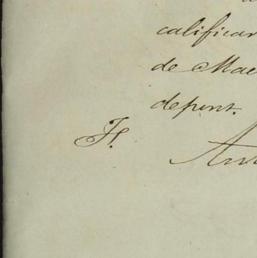 calificar
de Mae
depent.
F.
An